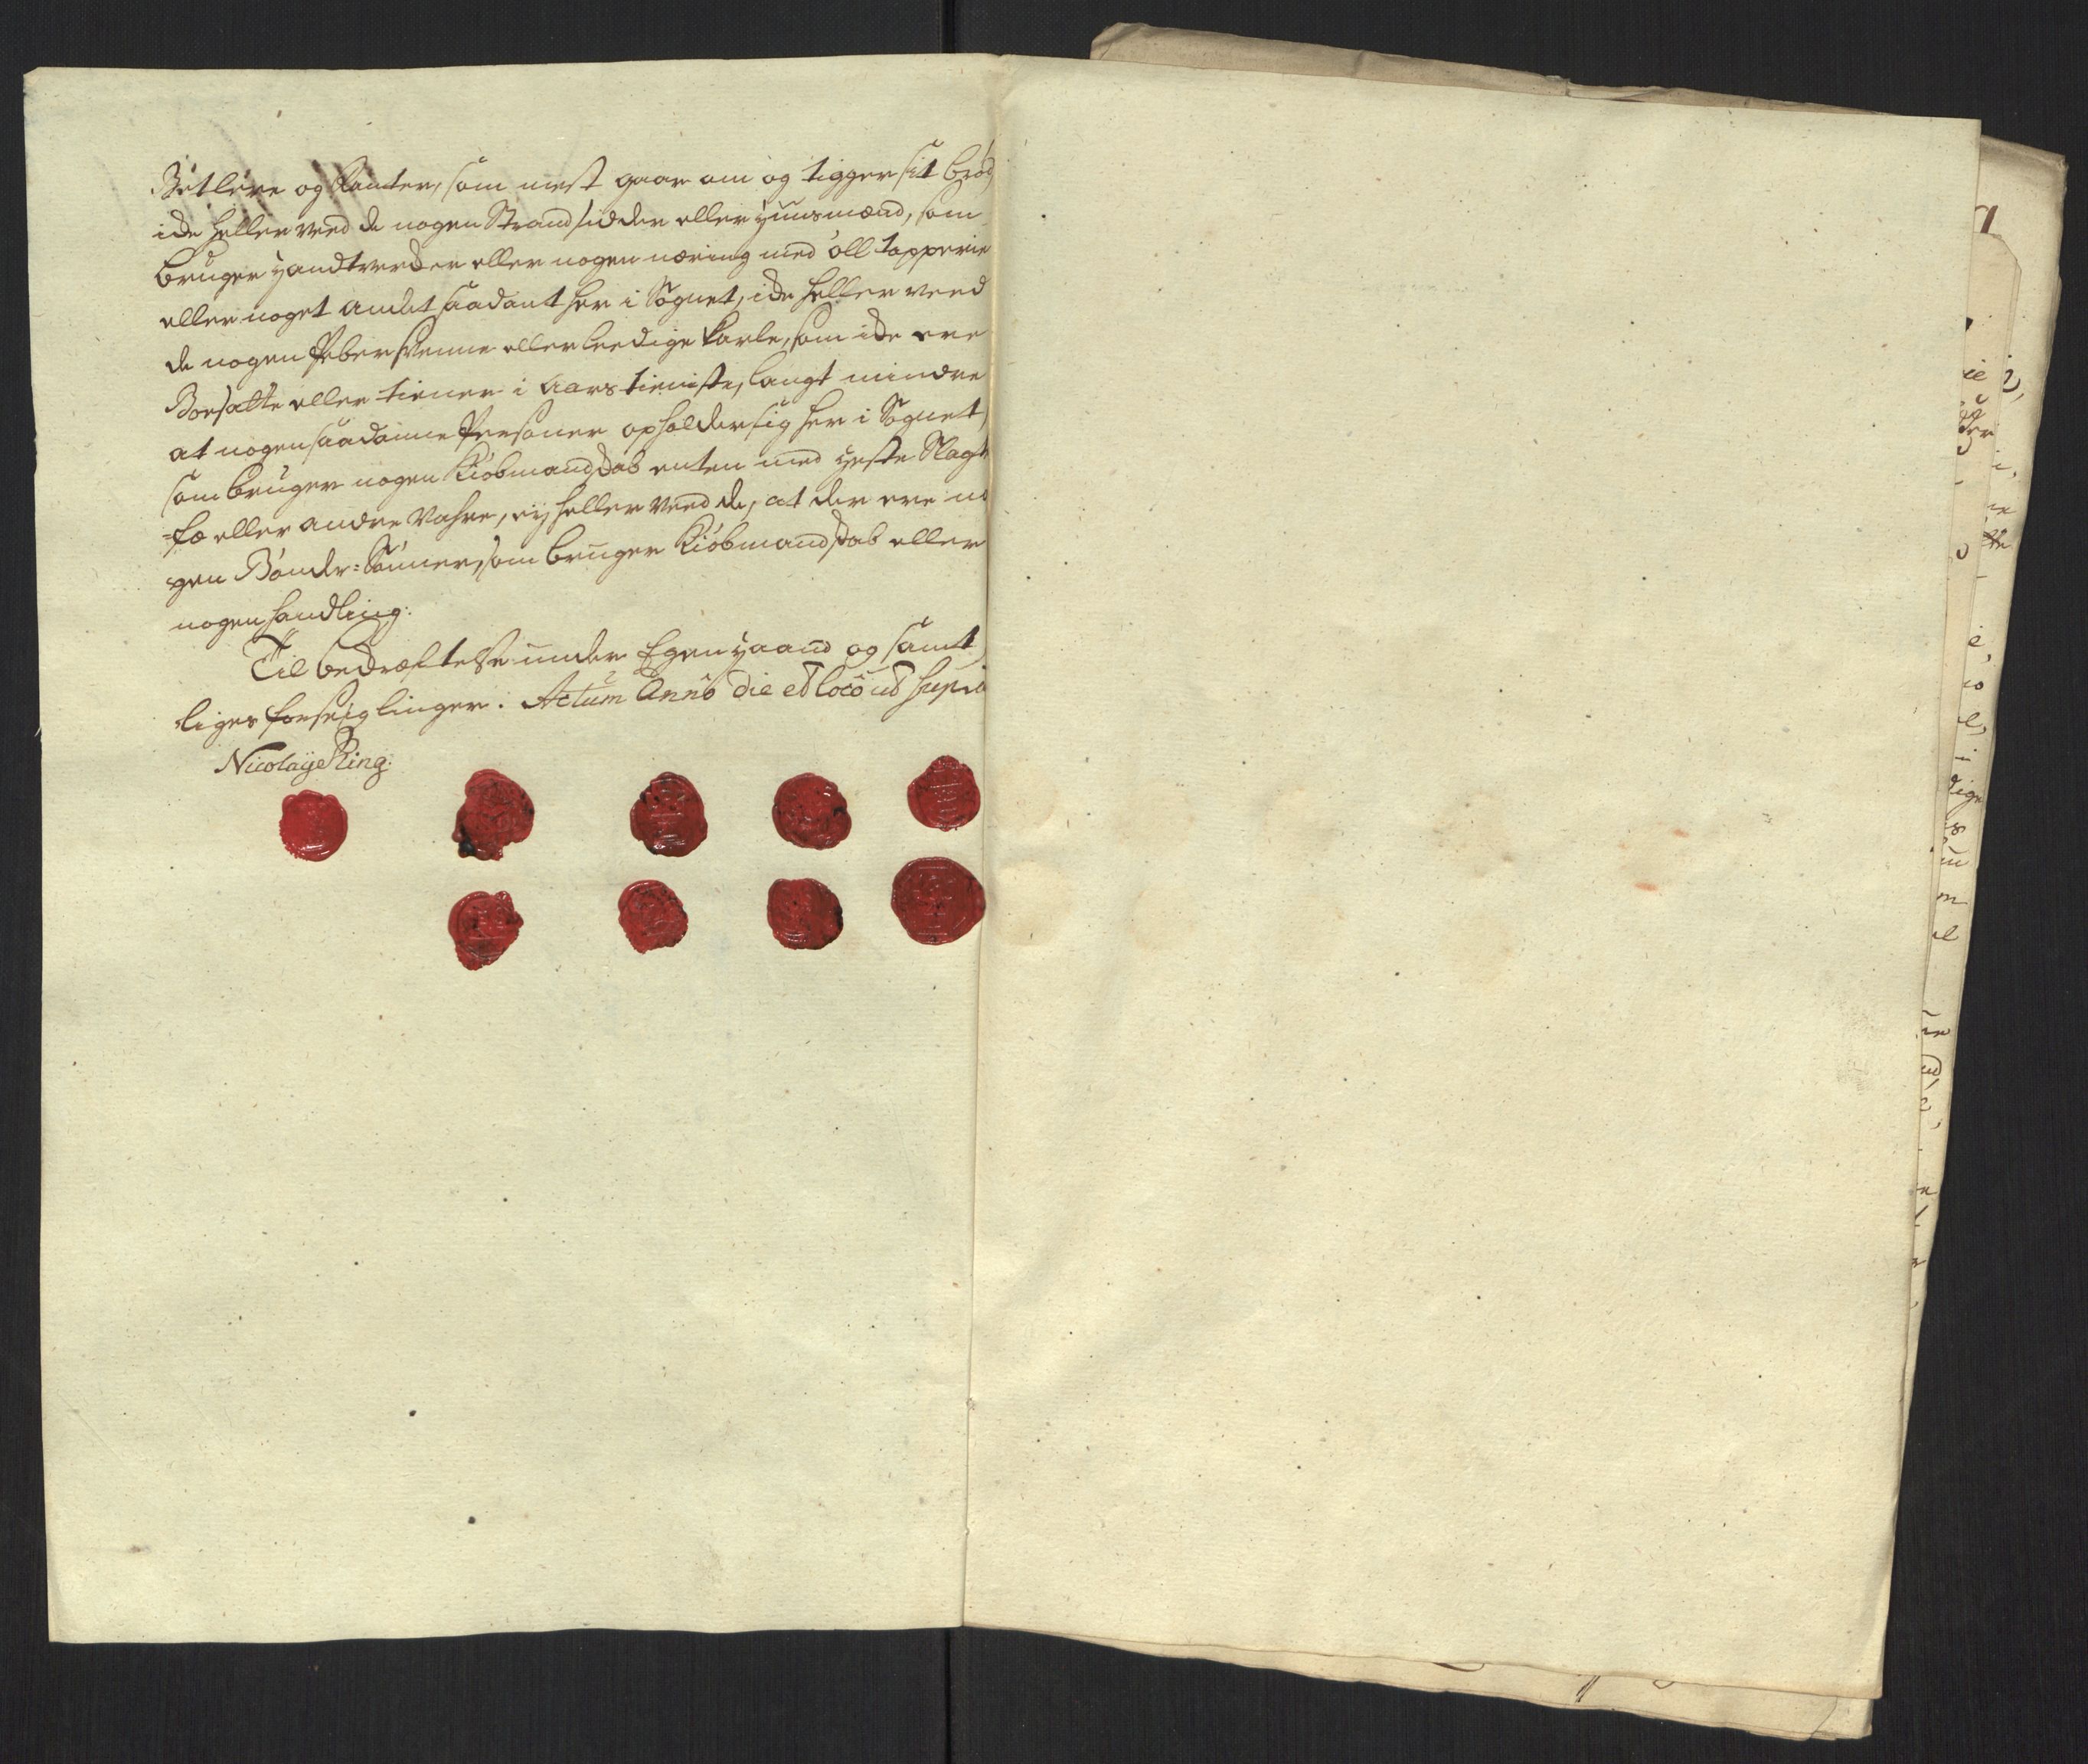 Betlere og Fanter, som mest gaar om og tigger sit brød
icke heller veed de nogen Strandsidder eller Huusmænd, som
bruger Handtvercker eller nogen næring med öll tapperie
eller noget andet saadant her i Sognet, icke heller veed
de nogen Pebersvenne eller leedige Karle, som icke ere
Boesatte eller tiener i aars tieniste, langt mindre
at nogen saadanne Persohner opholder sig her i Sognet,
som bruger nogen Kiöbmandskab enten med Heste Slagt
=fæ eller andre Vahre, ey heller veed de, at der ere no
gen Bønder=Sønner, som bruger Kiöbmandskab eller
nogen handling:
Til bedræftelse under Egen Haand og samt,
liges forseiglinger. Actum Anno die et loco ut supra
Nicolaye Ring: